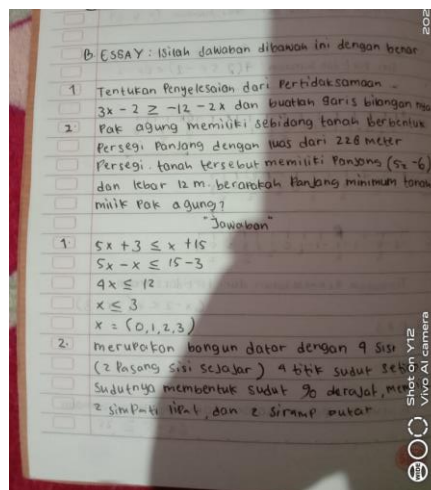 B ESSAY : Isilah Jawaban dibawah ini dengan benar
1 Tentukan Penyelesaian dari Pertidaksamaan
3x - 2 ≥ -12 - 2x dan buatlah garis bilangan nya
2 Pak agung memiliki sebidang tanah berbentuk
Persegi Panjang dengan luas dari 228 meter
Persegi. tanah tersebut memiliki Panjang (5x -6)
dan lebar 12 m. berapakah Panjang minimum tanah
milik Pak agung?
"Jawaban"
1. 5x + 3 ≤ x + 15
5x - x ≤ 15 - 3
4x ≤ 12
x ≤ 3
x = (0, 1, 2, 3)
2. merupakan bangun datar dengan 4 sisi
(2 Pasang sisi sejajar) 4 titik sudut
Sudutnya membentuk sudut 90 derajat,
2 lipat, dan 2 putar
Shot on Y12
Vivo AI camera
202